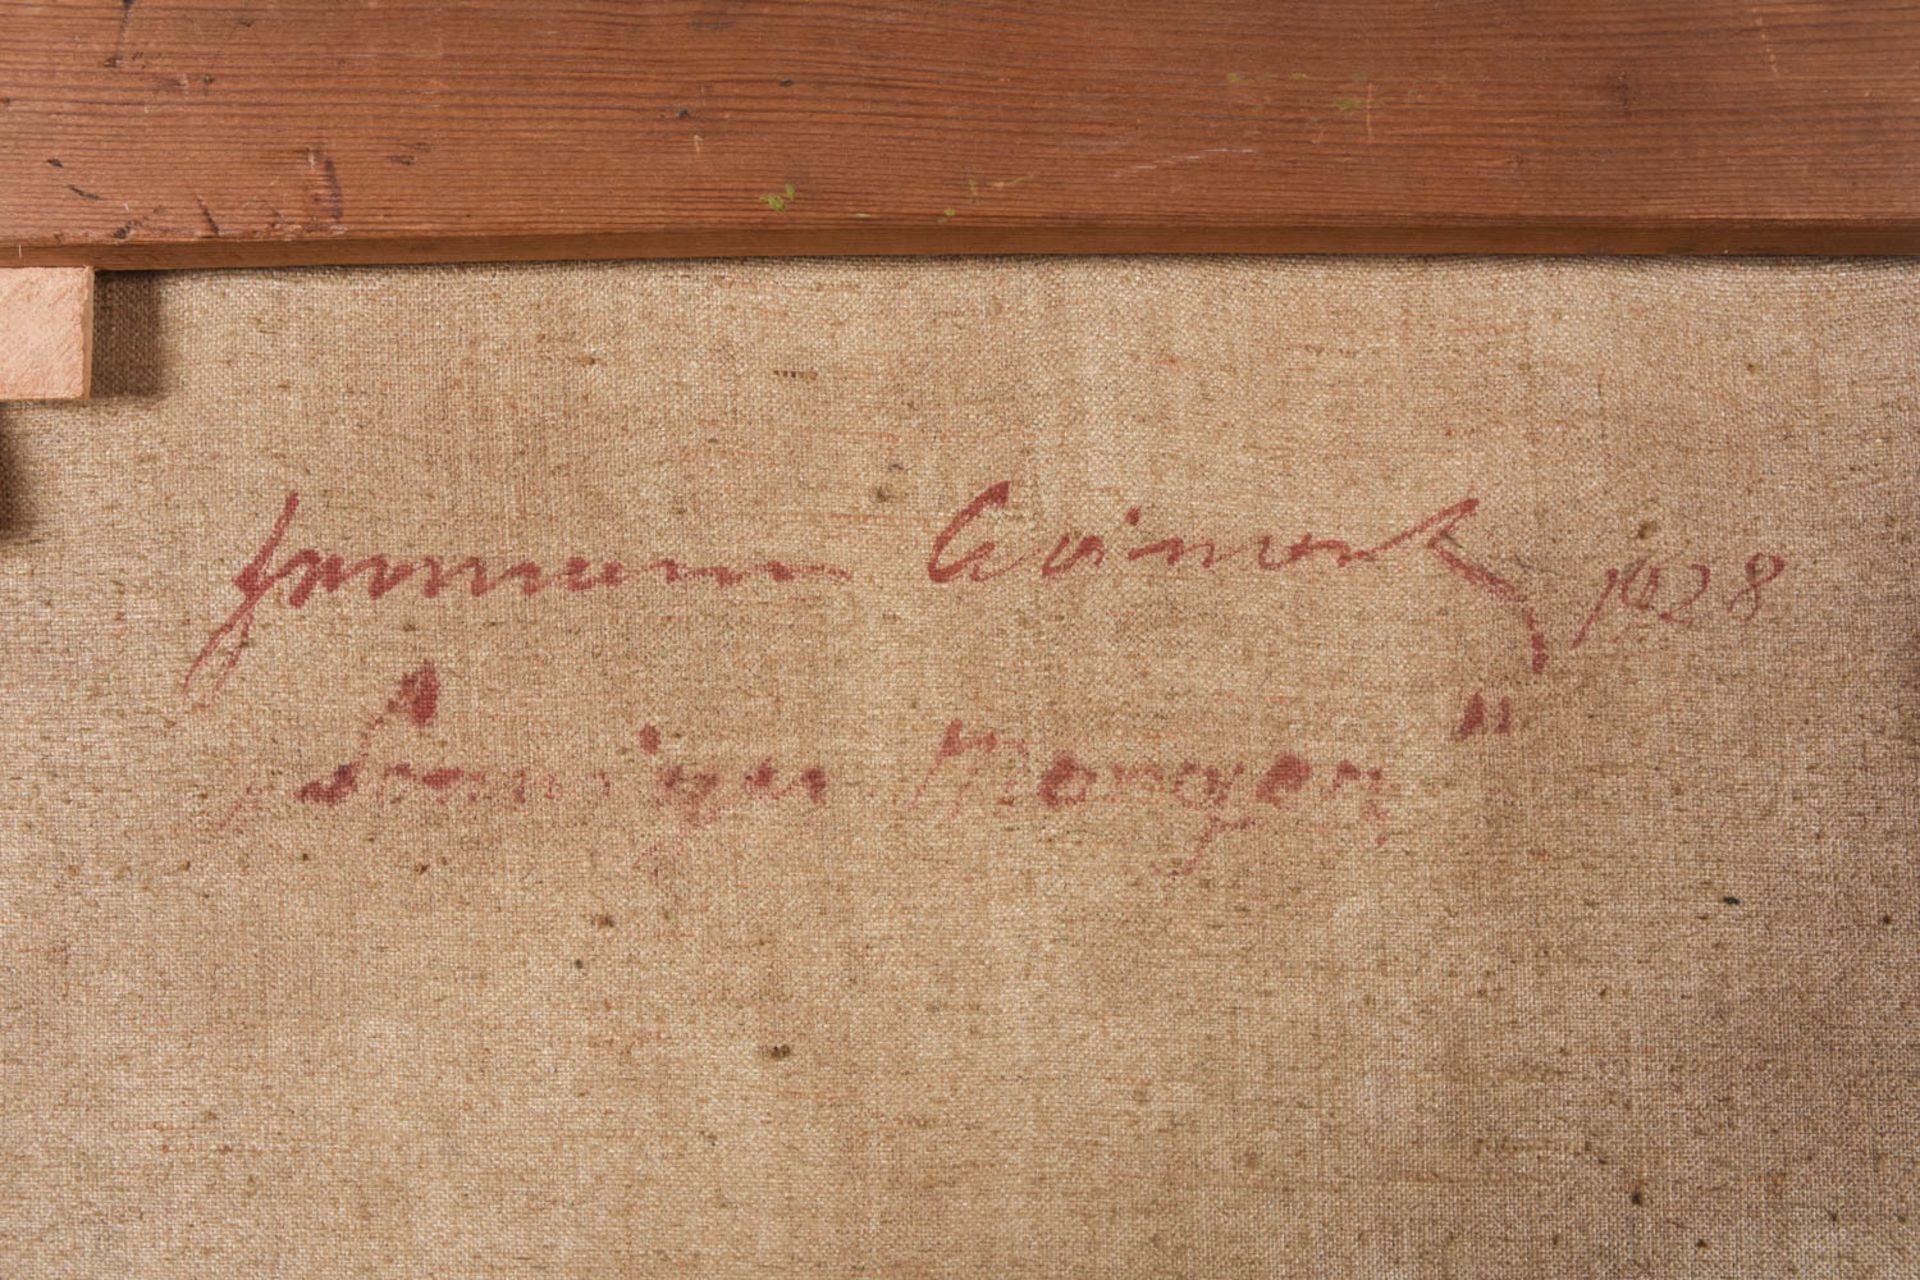 Hermann 1928
„Sonniger Morgen"